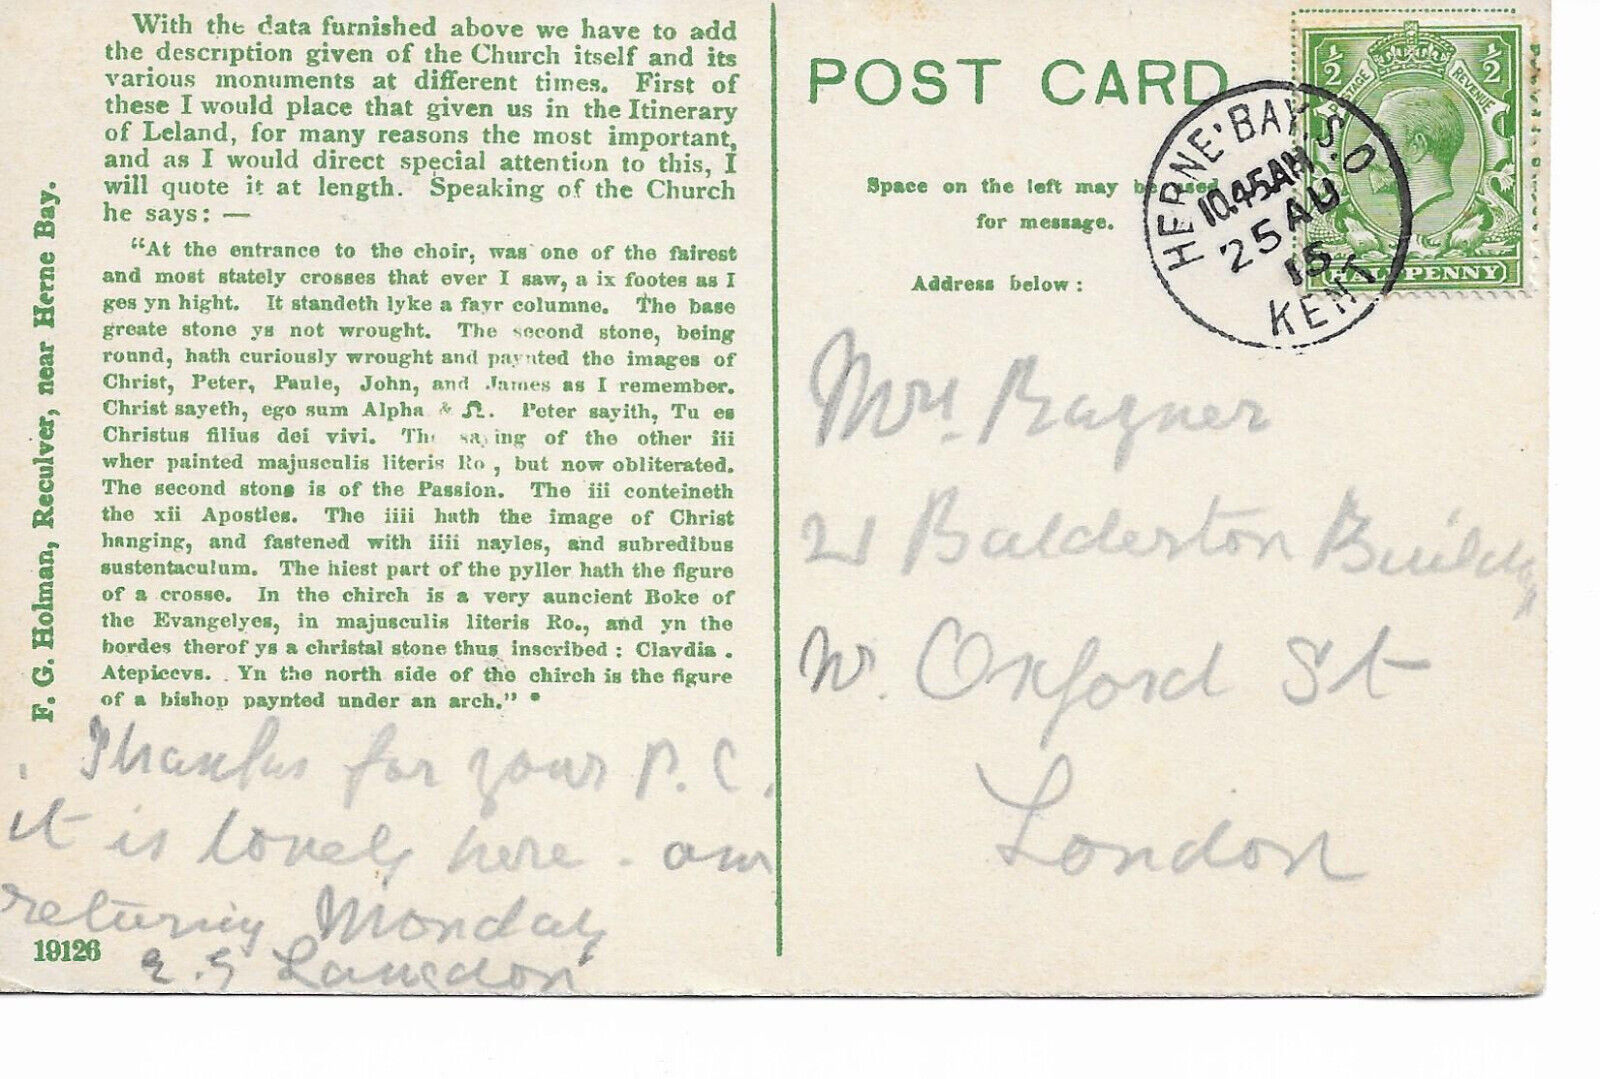 With the data furnished above we have to add
the description given of the Church itself and its
various monuments at different times. First of
these I would place that given us in the Itinerary
of Leland, for many reasons the most important,
and as I would direct special attention to this, I
will quote it at length. Speaking of the Church
he says: —
"At the entrance to the choir, was one of the fairest
and most stately crosses that ever I saw, a ix footes as I
ges yn hight. It standeth lyke a fayr columne. The base
greate stone ys not wrought. The second stone, being
round, hath curiously wrought and paynted the images of
Christ, Peter, Paule, John, and James as I remember.
Christ sayeth, ego sum Alpha & Ω. Peter sayith, Tu es
Christus filius dei vivi. The saying of the other iii
wher painted majusculis literis Ro, but now obliterated.
The second stone is of the Passion. The iii conteineth
the xii Apostles. The iiii hath the image of Christ
hanging, and fastened with iiii nayles, and subredibus
sustentaculum. The hiest part of the pyller hath the figure
of a crosse. In the chirch is a very auncient Boke of
the Evangelyes, in majusculis literis Ro., and yn the
bordes therof ys a christal stone thus inscribed: Clavdia.
Atepiccvs. Yn the north side of the chirch is the figure
of a bishop paynted under an arch." *
F. G. Holman, Reculver, near Herne Bay.
Thanks for your P.C.
it is lovely here - am
returning Monday
E. S Langdon
19126
POST CARD
Space on the left may be used
for message.
Address below:
POSTAGE REVENUE
½ ½
HALFPENNY
HERNE BAY. S.O
10.45AM
25 AU
15
KENT
Mrs. Ragner
21 Balderton Buildgs
N. Oxford St
London